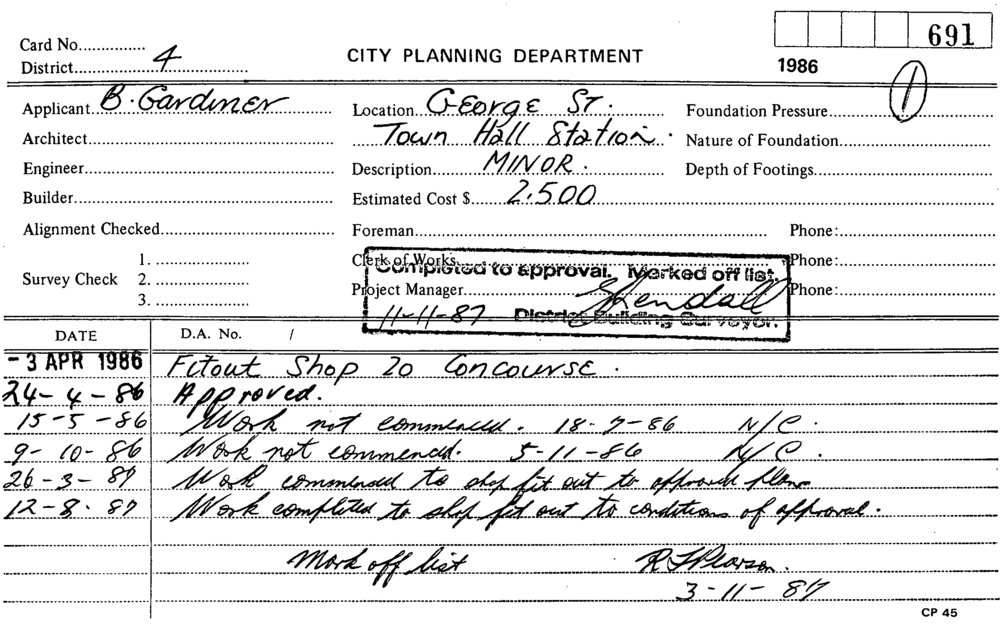 691
Card No...............
District........4........
CITY PLANNING DEPARTMENT
1986
1
Applicant. B. Gardiner
Location. George St.
Foundation Pressure
Architect
Town Hall Station.
Nature of Foundation
Engineer
Description MINOR.
Depth of Footings
Builder
Estimated Cost $ 2.500
Alignment Checked
Foreman
Phone:
Survey Check
1.
2.
3.
Clerk of Works
Phone:
Project Manager
Phone:
Completed to approval. Marked off list.
11-11-87 District Building Surveyor.
DATE
D.A. No. /
-3 APR 1986 Fitout Shop 20 Concourse.
24-4-86 Approved.
15-5-86 Work not commenced. 18-7-86 N/C.
9-10-86 Work not commencd. 5-11-86 N/C.
26-3-87 Work commenced to shop fit out to approved plans
12-8-87 Work completed to shop fit out to conditions of approval.
Mark off list
3-11-87
CP 45